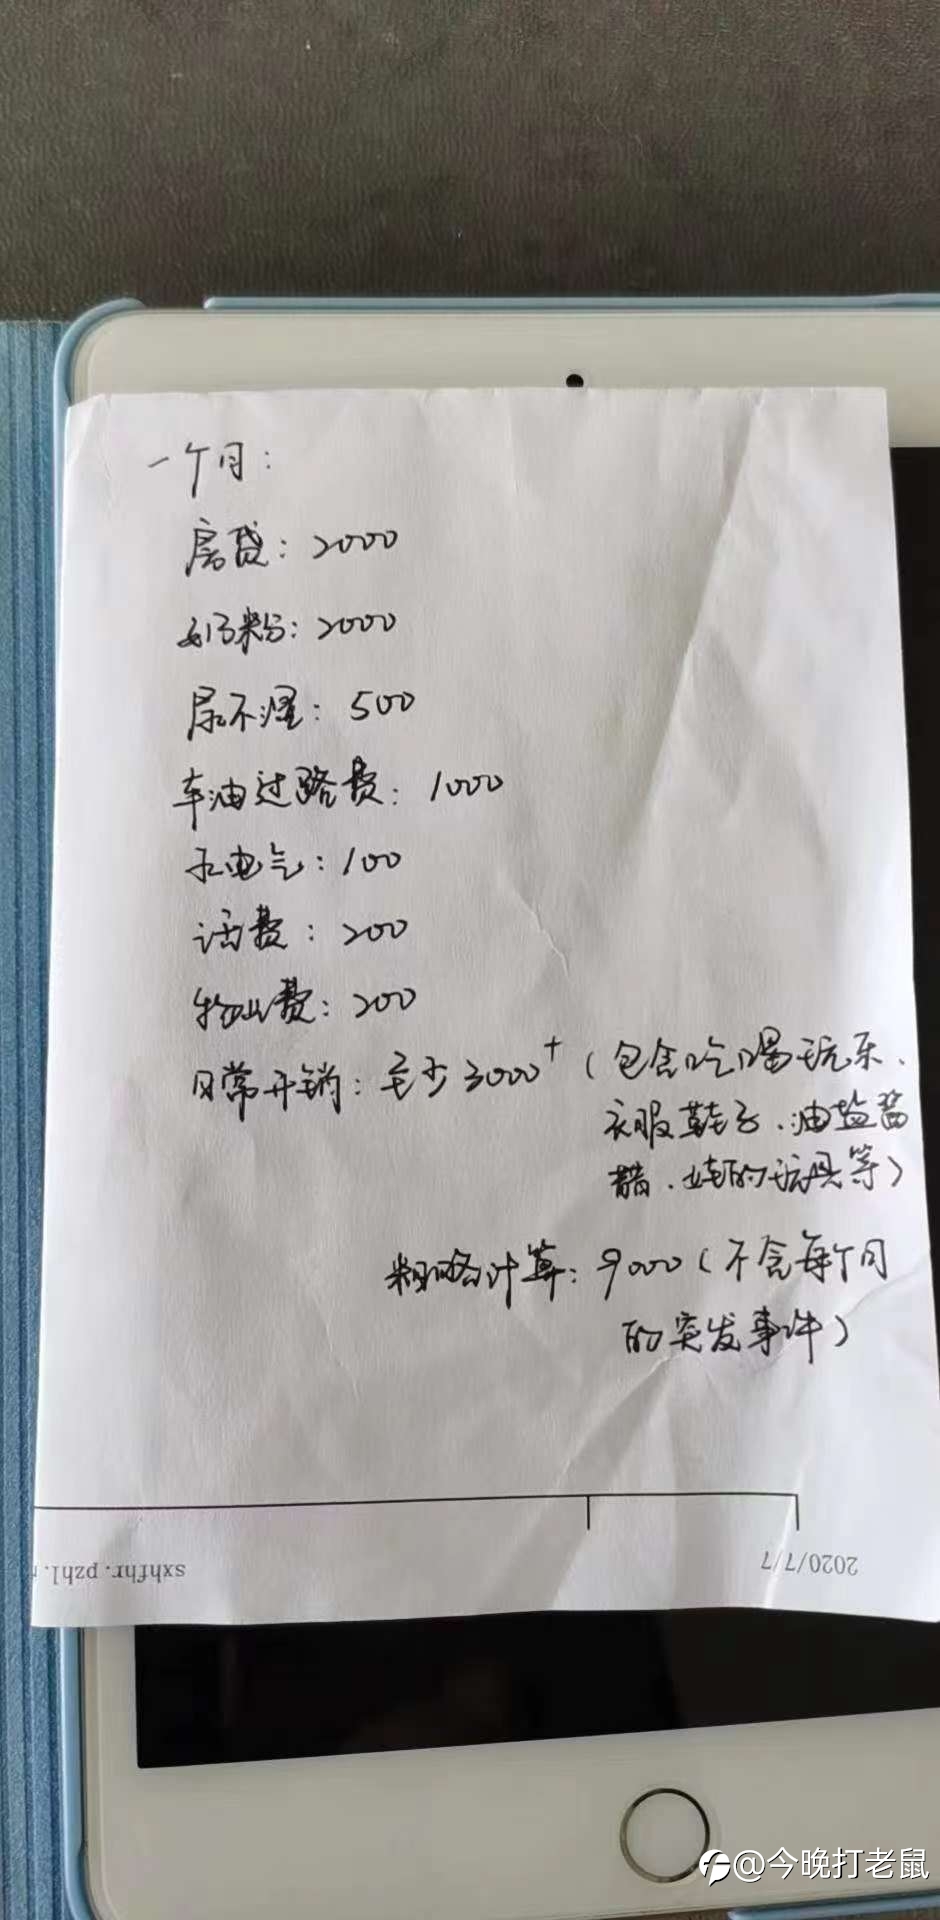 一个月：
房贷：2000
奶粉：2000
尿不湿：500
车油过路费：1000
水电气：100
话费：200
物业费：200
日常开销：至少3000+（包含吃喝玩乐、
衣服鞋子、油盐酱
醋、娃的玩具等）
粗略计算：9000（不含每个月
的突发事件）
2020/7/7
sxhfhr.pzhl.
@今晚打老鼠